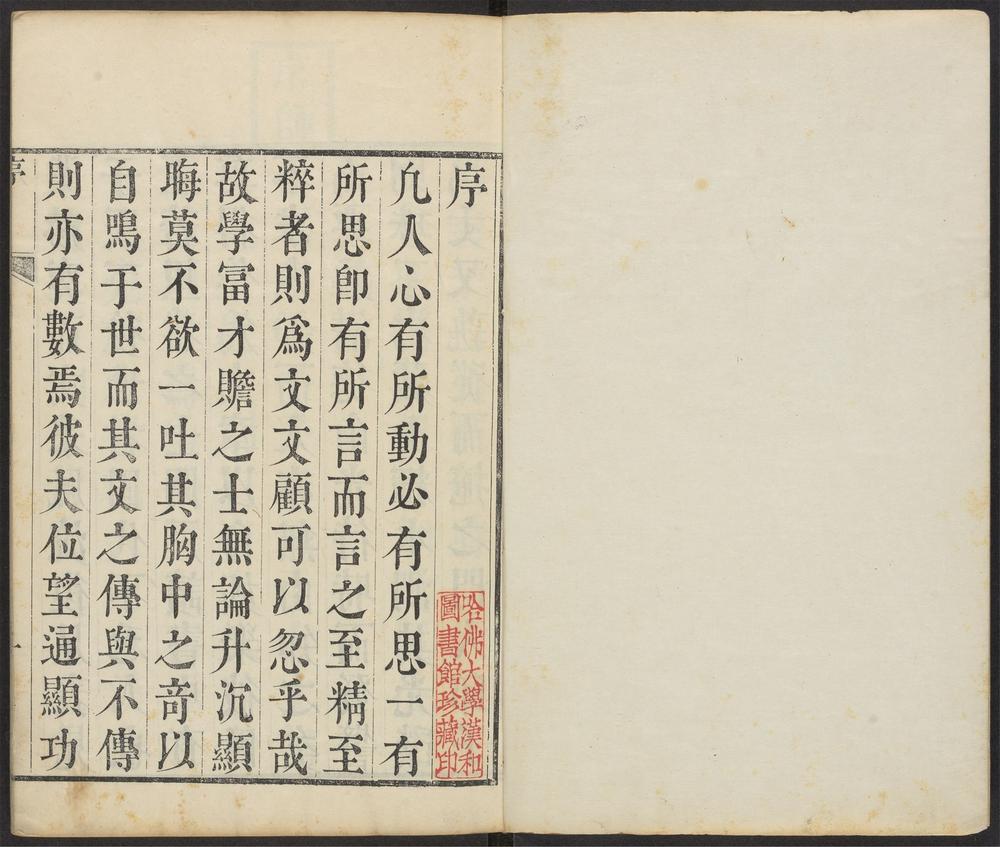 序
凢人心有所動必有所思一有
所思卽有所言而言之至精至
粹者則爲文文顧可以忽乎哉
故學冨才贍之士無論升沉顯
晦莫不欲一吐其胸中之竒以
自鳴于世而其文之傳與不傳
則亦有數焉彼夫位望通顯功
序
一
哈佛大學漢和
圖書館珍藏印